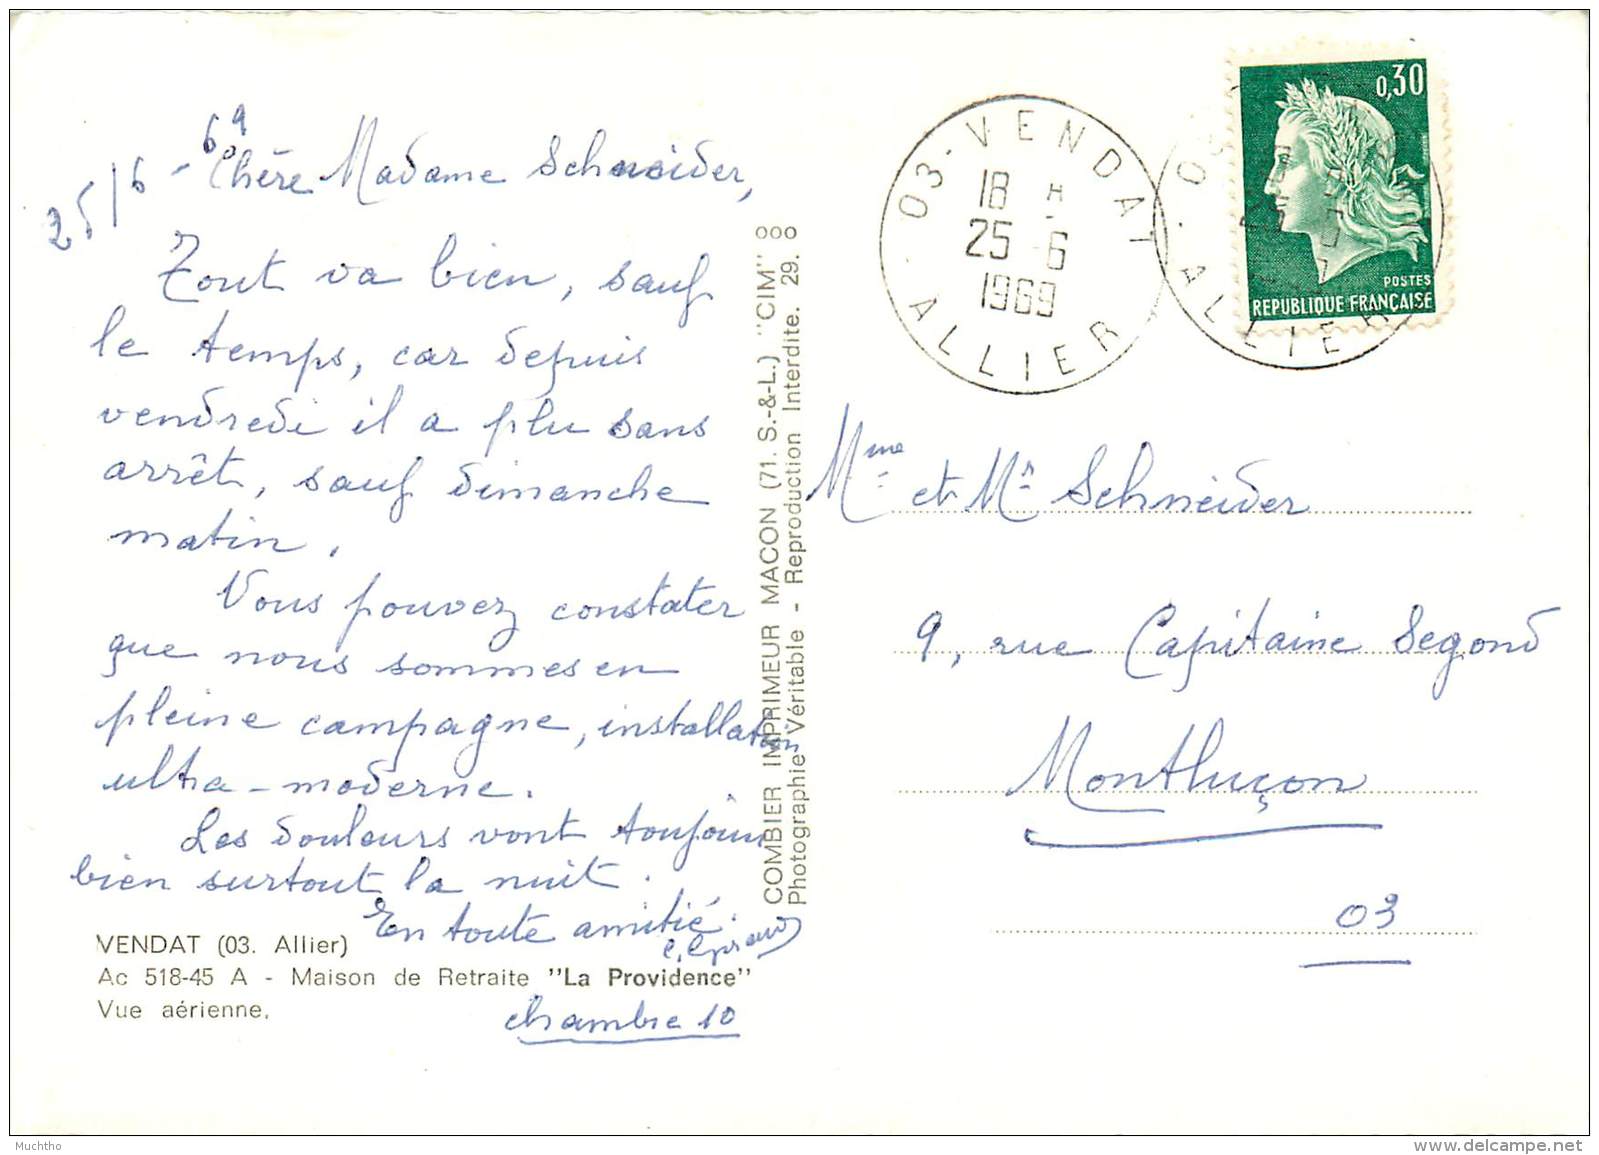 25/6-69
Chère Madame Schneider,
Tout va bien, sauf
le temps, car depuis
vendredi il a plu sans
arrêt, sauf dimanche
matin.
Vous pouvez constater
que nous sommes en
pleine campagne, installation
ultra-moderne.
Les douleurs vont toujours
bien surtout la nuit.
En toute amitié.
VENDAT (03. Allier)
Ac 518-45 A - Maison de Retraite "La Providence"
Vue aérienne.
chambre 10
COMBIER IMPRIMEUR MACON (71. S.-&-L.) "CIM" ooo
Photographie Véritable - Reproduction Interdite. 29.
03-VENDAT
18 H
25-6
1969
ALLIER
ALLIER
0,30
POSTES
REPUBLIQUE FRANÇAISE
Mme et Mr Schneider
9, rue Capitaine Segond
Montluçon
03
Muchtho
www.delcampe.net